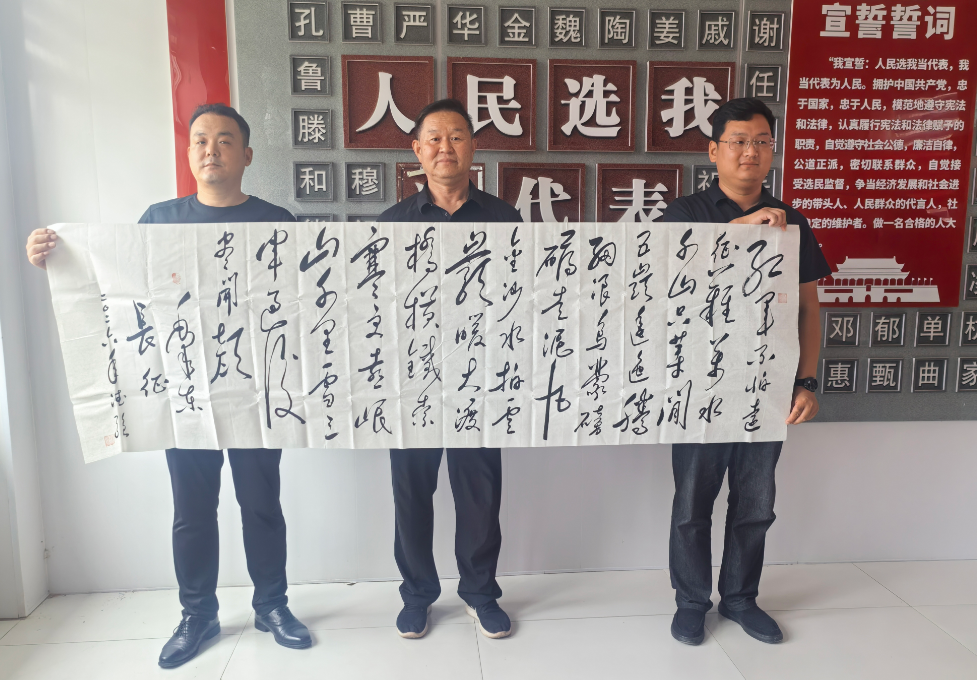 孔曹严华金魏陶姜戚谢
鲁
任
滕
和穆
祝
人民选我
代表
宣誓誓词
“我宣誓：人民选我当代表，我
当代表为人民。拥护中国共产党，忠
于国家，忠于人民，模范地遵守宪法
和法律，认真履行宪法和法律赋予的
职责，自觉遵守社会公德，廉洁自律，
公道正派，密切联系群众，自觉接
受选民监督，争当经济发展和社会进
步的带头人、人民群众的代言人，社
稳定的维护者。做一名合格的人大
红军不怕遠
征難萬水
千山只等闲
五嶺逶迤騰
細浪烏蒙磅
礴走泥丸
金沙水拍雲
巖暖大渡
橋横鐵索
寒更喜岷
山千里雪三
军过後
尽開颜
毛泽东
長征
邓郁单杭
惠甄曲家